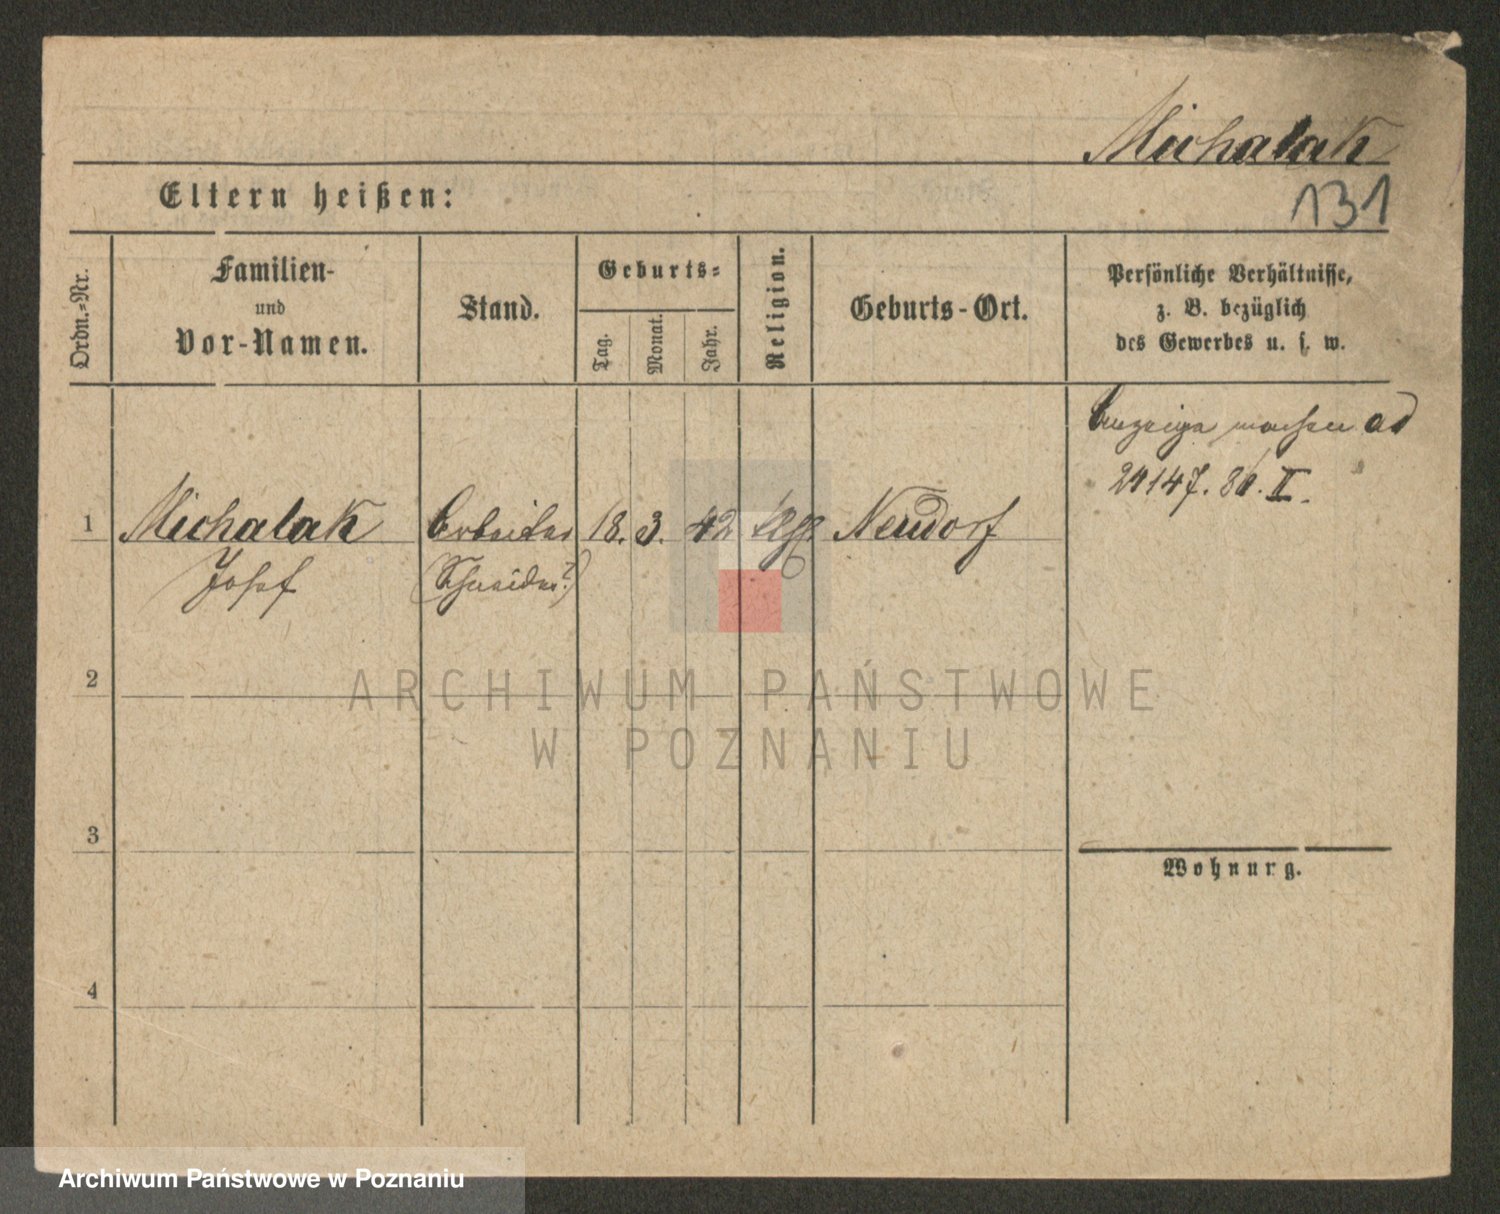 Michalak
131
Eltern heißen:
Ordn.-Nr.
Familien-
und
Vor-Namen.
Stand.
Geburts-
Tag.
Monat.
Jahr.
Religion.
Geburts-Ort.
Persönliche Verhältnisse,
z. B. bezüglich
des Gewerbes u. s. w.
Anzeige machen ad
24147. 80. II.
1 Michalak Arbeiter 18. 3. 42 Neudorf
Josef (Schneider?)
2
ARCHIWUM PAŃSTWOWE
W POZNANIU
3
Wohnung.
4
Archiwum Państwowe w Poznaniu